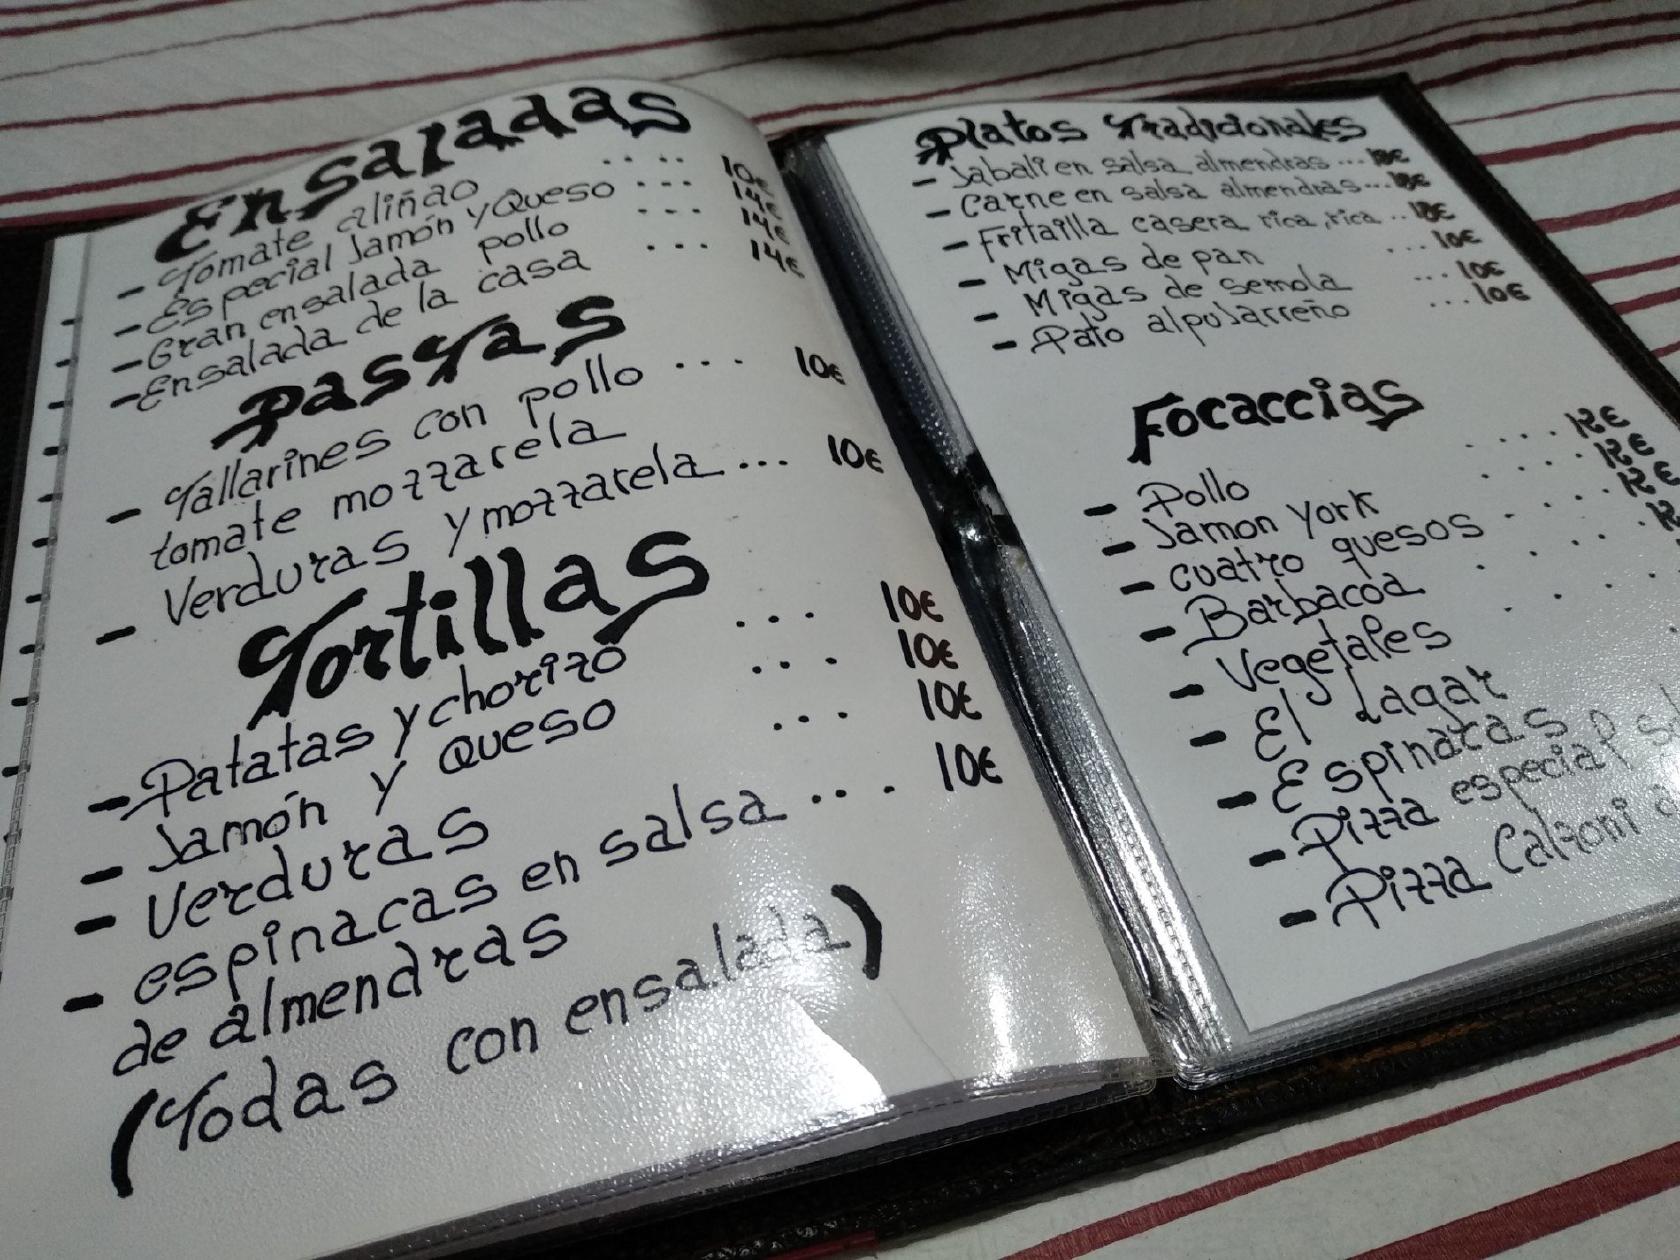 Ensaladas
- Tomate aliñao .... 10€
- Especial Jamón y Queso ... 14€
- Gran ensalada pollo ... 14€
- Ensalada de la casa ... 14€
Pastas
- Tallarines con pollo ... 10€
tomate mozzarela
- Verduras y mozzarela ... 10€
Tortillas
- Patatas y chorizo ... 10€
- Jamón y queso ... 10€
- Verduras ... 10€
- espinacas en salsa .... 10€
de almendras
(Todas con ensalada)
Platos Tradicionales
- Jabalí en salsa almendras ...
- Carne en salsa almendras ...
- Fritailla casera rica, rica ..
- Migas de pan ... 10€
- Migas de semola ... 10€
- Pato alpujarreño ... 10€
Focaccias
- Pollo .... 12€
- Jamon York .... 12€
- Cuatro quesos .... 12€
- Barbacoa
- Vegetales
- El Lagar
- Espinacas
- Pizza especial
- Pizza Calzoni